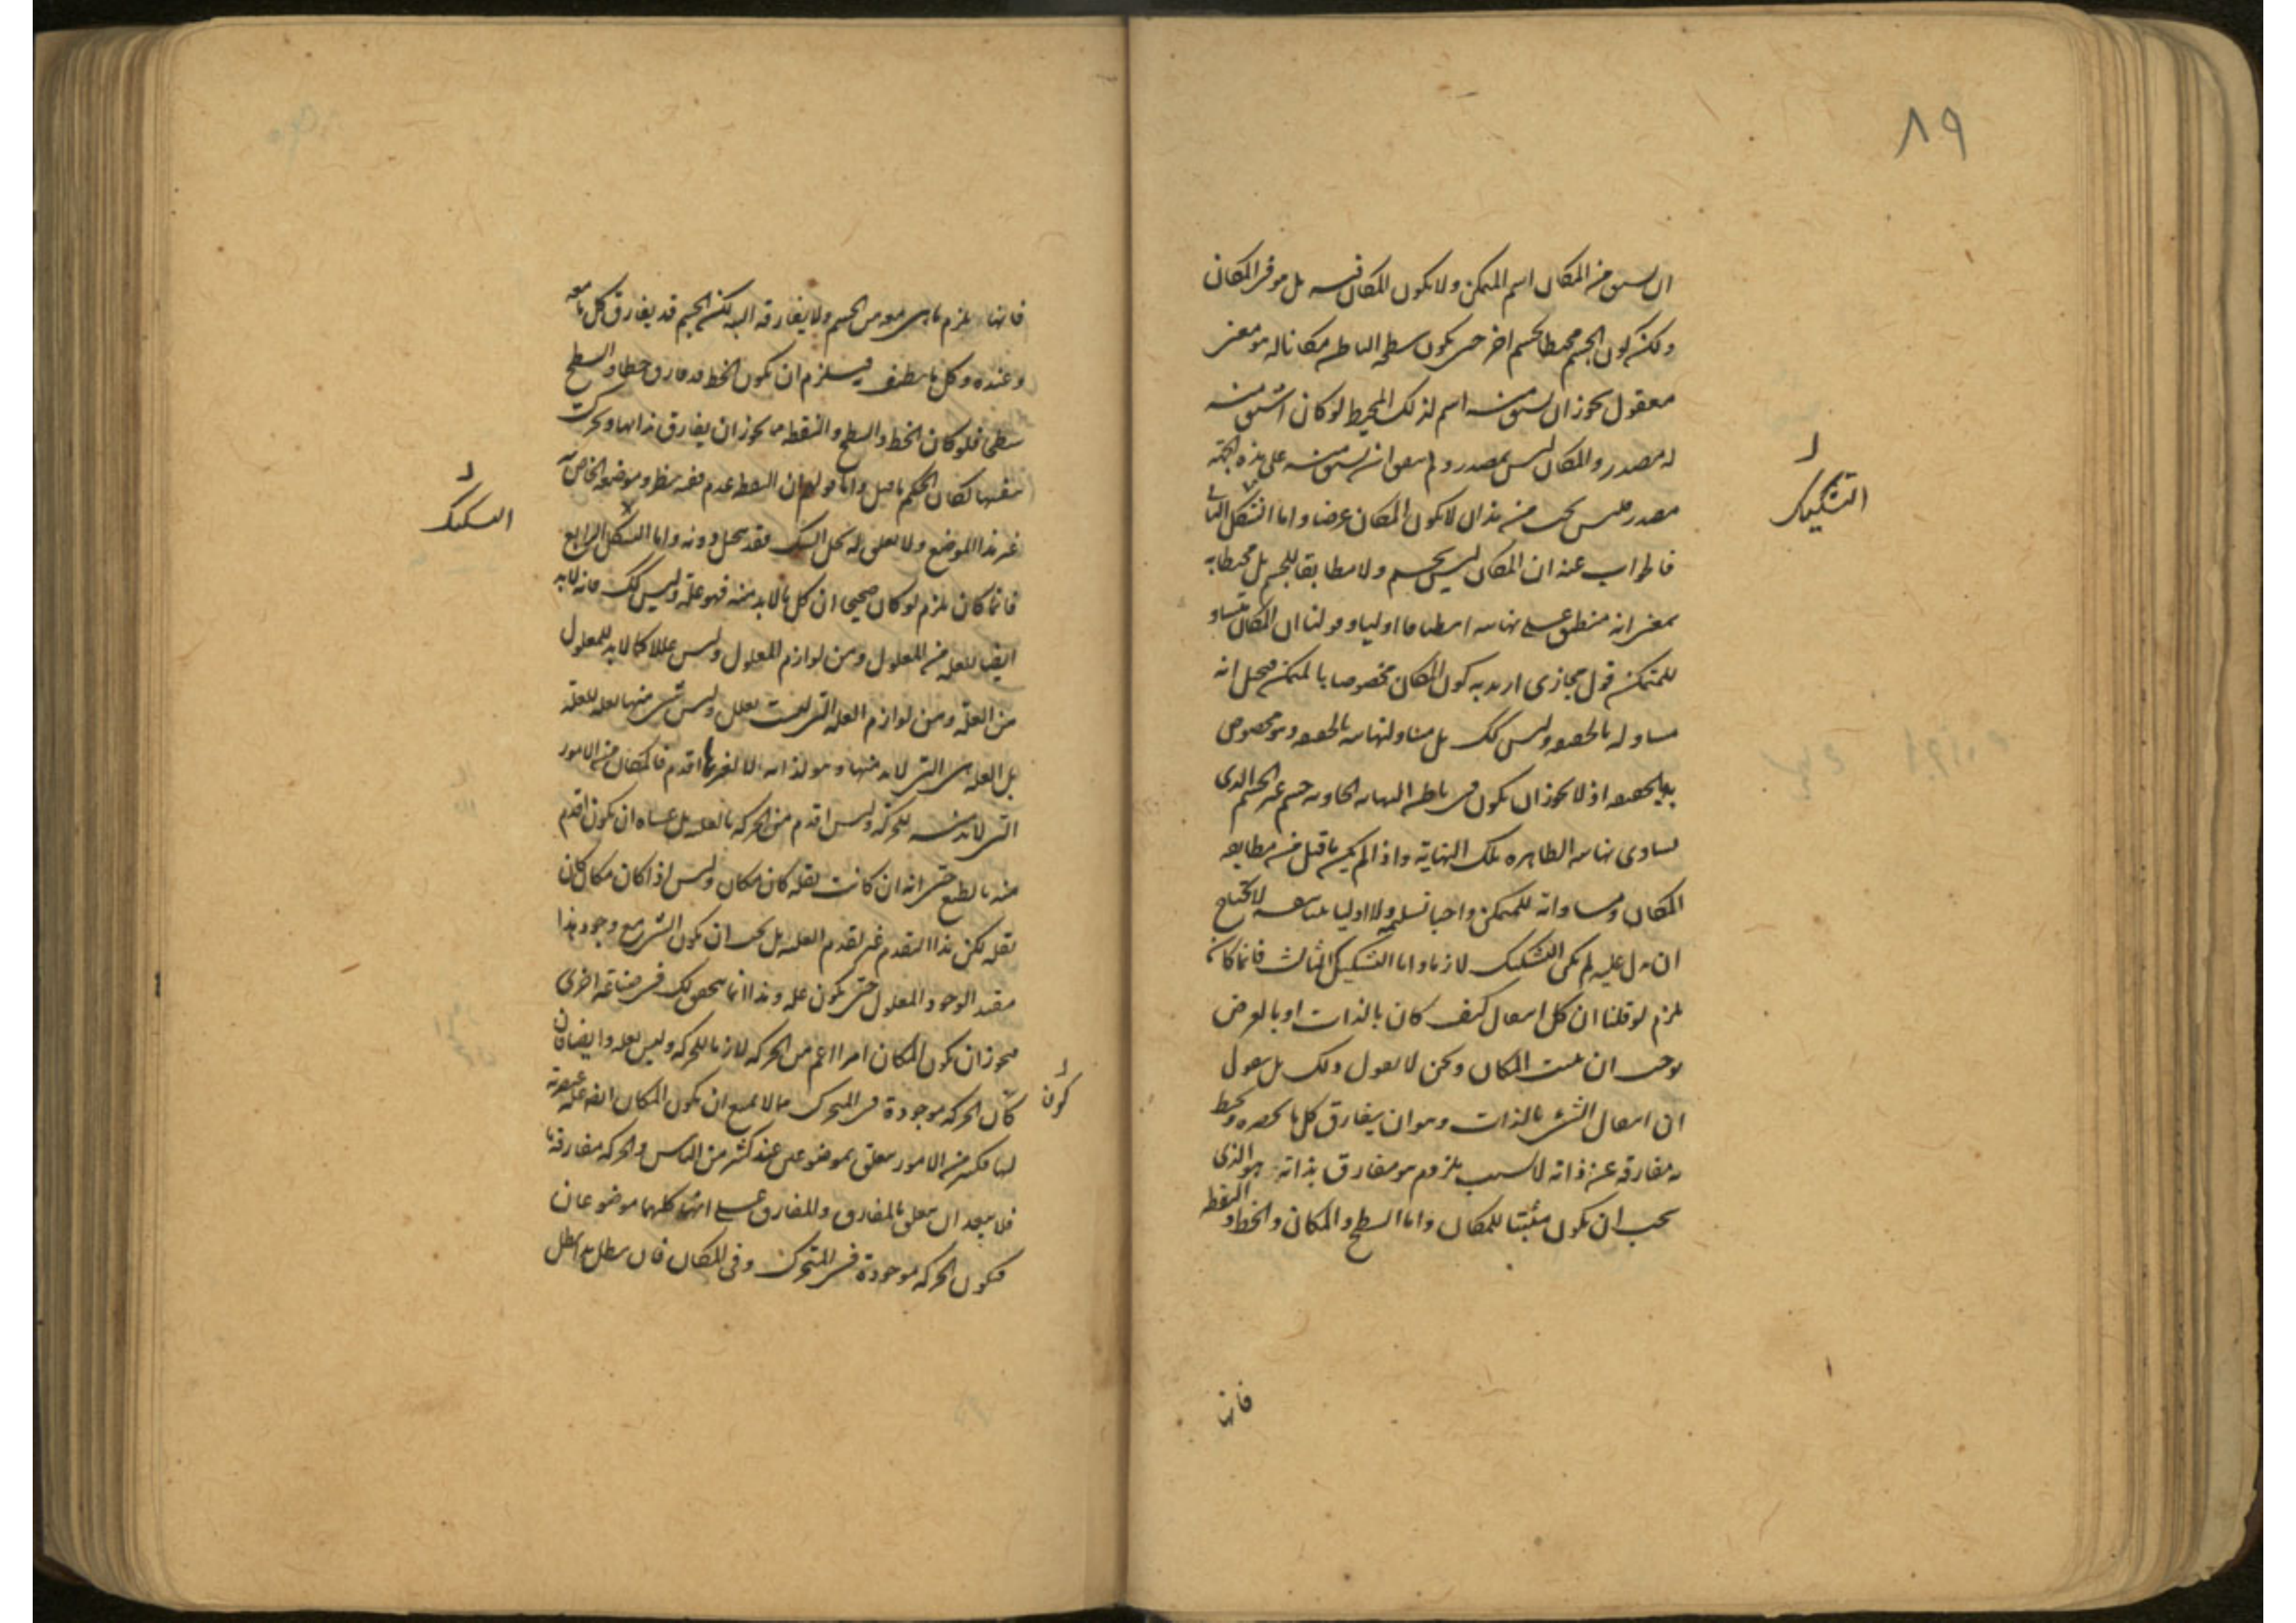 ٨٩
ان يشتق من المكان اسم المتمكن ولا يكون المكان فيه بل هو فى المكان
ولكن كون الجسم محيطا بجسم اخر حتى يكون سطحه الباطن مكانا له هو معنى
معقول يجوز ان يشتق منه اسم لذلك المحيط لو كان اشتق منه
له مصدر والمكان ليس بمصدر ولم يتفق ان يشتق منه على هذه الجهة
مصدر فليس يجب من هذا ان لا يكون المكان عرضا واما التشكك الثانى
التشكيك
فالجواب عنه ان المكان ليس بجسم ولا مطابقا للجسم بل محيطا به
بمعنى انه منطبق على نهايته انطباقا اوليا وقولنا ان المكان مساو
للمتمكن قول مجازى اريد به كون المكان مخصوصا بالمتمكن فيخيل انه
مساو له بالحقيقه وليس كك بل مساو لنهايته بالحقيقه وهو مخصوص
به بالحقيقه اذ لا يجوز ان يكون فى باطن النهايه الحاويه جسم غير الجسم الذى
يساوى نهايته الظاهره تلك النهاية واذا لم يكن ما قيل من مطابقه
المكان ومساواته للمتمكن واجبا تسليمه ولا اوليا بنفسه لا يحتاج
ان يدل عليه لم يكن التشكيك لازما واما التشكيك الثالث فانما كان
يلزم لو قلنا ان كل انتقال كيف كان بالذات او بالعرض
يوجب ان يثبت المكان ونحن لا نقول ذلك بل نقول
ان انتقال الشئ بالذات وهو ان يفارق كل ما يحصره ويحيط
به مفارقه عن ذاته لا بسبب ملزوم هو مفارق بذاته هو الذى
يجب ان يكون مثبتا للمكان واما السطح والمكان والخط والنقطه
فانها
فانها يلزم ما هى معه من الجسم ولا يفارقه البته لكن الجسم قد يفارق كل ما معه
وعنده وكل ما يطيف فيلزم ان يكون الخط قد فارق خطا والسطح
سطحا فلو كان الخط والسطح والنقطه مما يجوز ان يفارق بذاتها وتحركت
بنفسها لكان الحكم ما قيل واما قولهم ان النقطه عدم ففيه نظر وموضعه الخاص به
غير هذا الموضع ولا تعلق له بحل الشك فقد ينحل دونه واما التشكك الرابع
التشكيك
فانما كان يلزم لو كان صحيحا ان كل ما لا بد منه فهو علة وليس كك فانه لا بد
ايضا للعله من المعلول ومن لوازم المعلول وليس عللا كما لا بد للمعلول
من العلة ومن لوازم العله التى ليست بعلل وليس شئ منها بعله للعلة
بل العله هى التى لا بد منها وهو لذاته لا لغيرها اقدم فالمكان من الامور
التى لا بد منه للحركه وليس اقدم من الحركه بالعليه بل عساه ان يكون اقدم
منه بالطبع حتى انه ان كانت نقله كان مكان وليس اذا كان مكان كان
نقله لكن هذا التقدم غير تقدم العله بل يجب ان يكون الشئ مع وجود هذا
مفيد الوجود المعلول حتى يكون عله وهذا انما يتحقق لك فى صناعة اخرى
فيجوز ان يكون المكان امرا اعم من الحركه لازما للحركه وليس بعله وايضا فان
كان الحركه موجودة فى المتحرك مما لا يمنع ان يكون المكان ايضا علة عنصرية
كون
لها فكثير من الامور يتعلق بموضوعين عند كثير من الناس والحركه مفارقة ما
فلا يبعد ان يتعلق بالمفارق والمفارق على انهما كلاهما موضوعان
فيكون الحركه موجودة فى المتحرك وفى المكان فان بطل هذا بطل